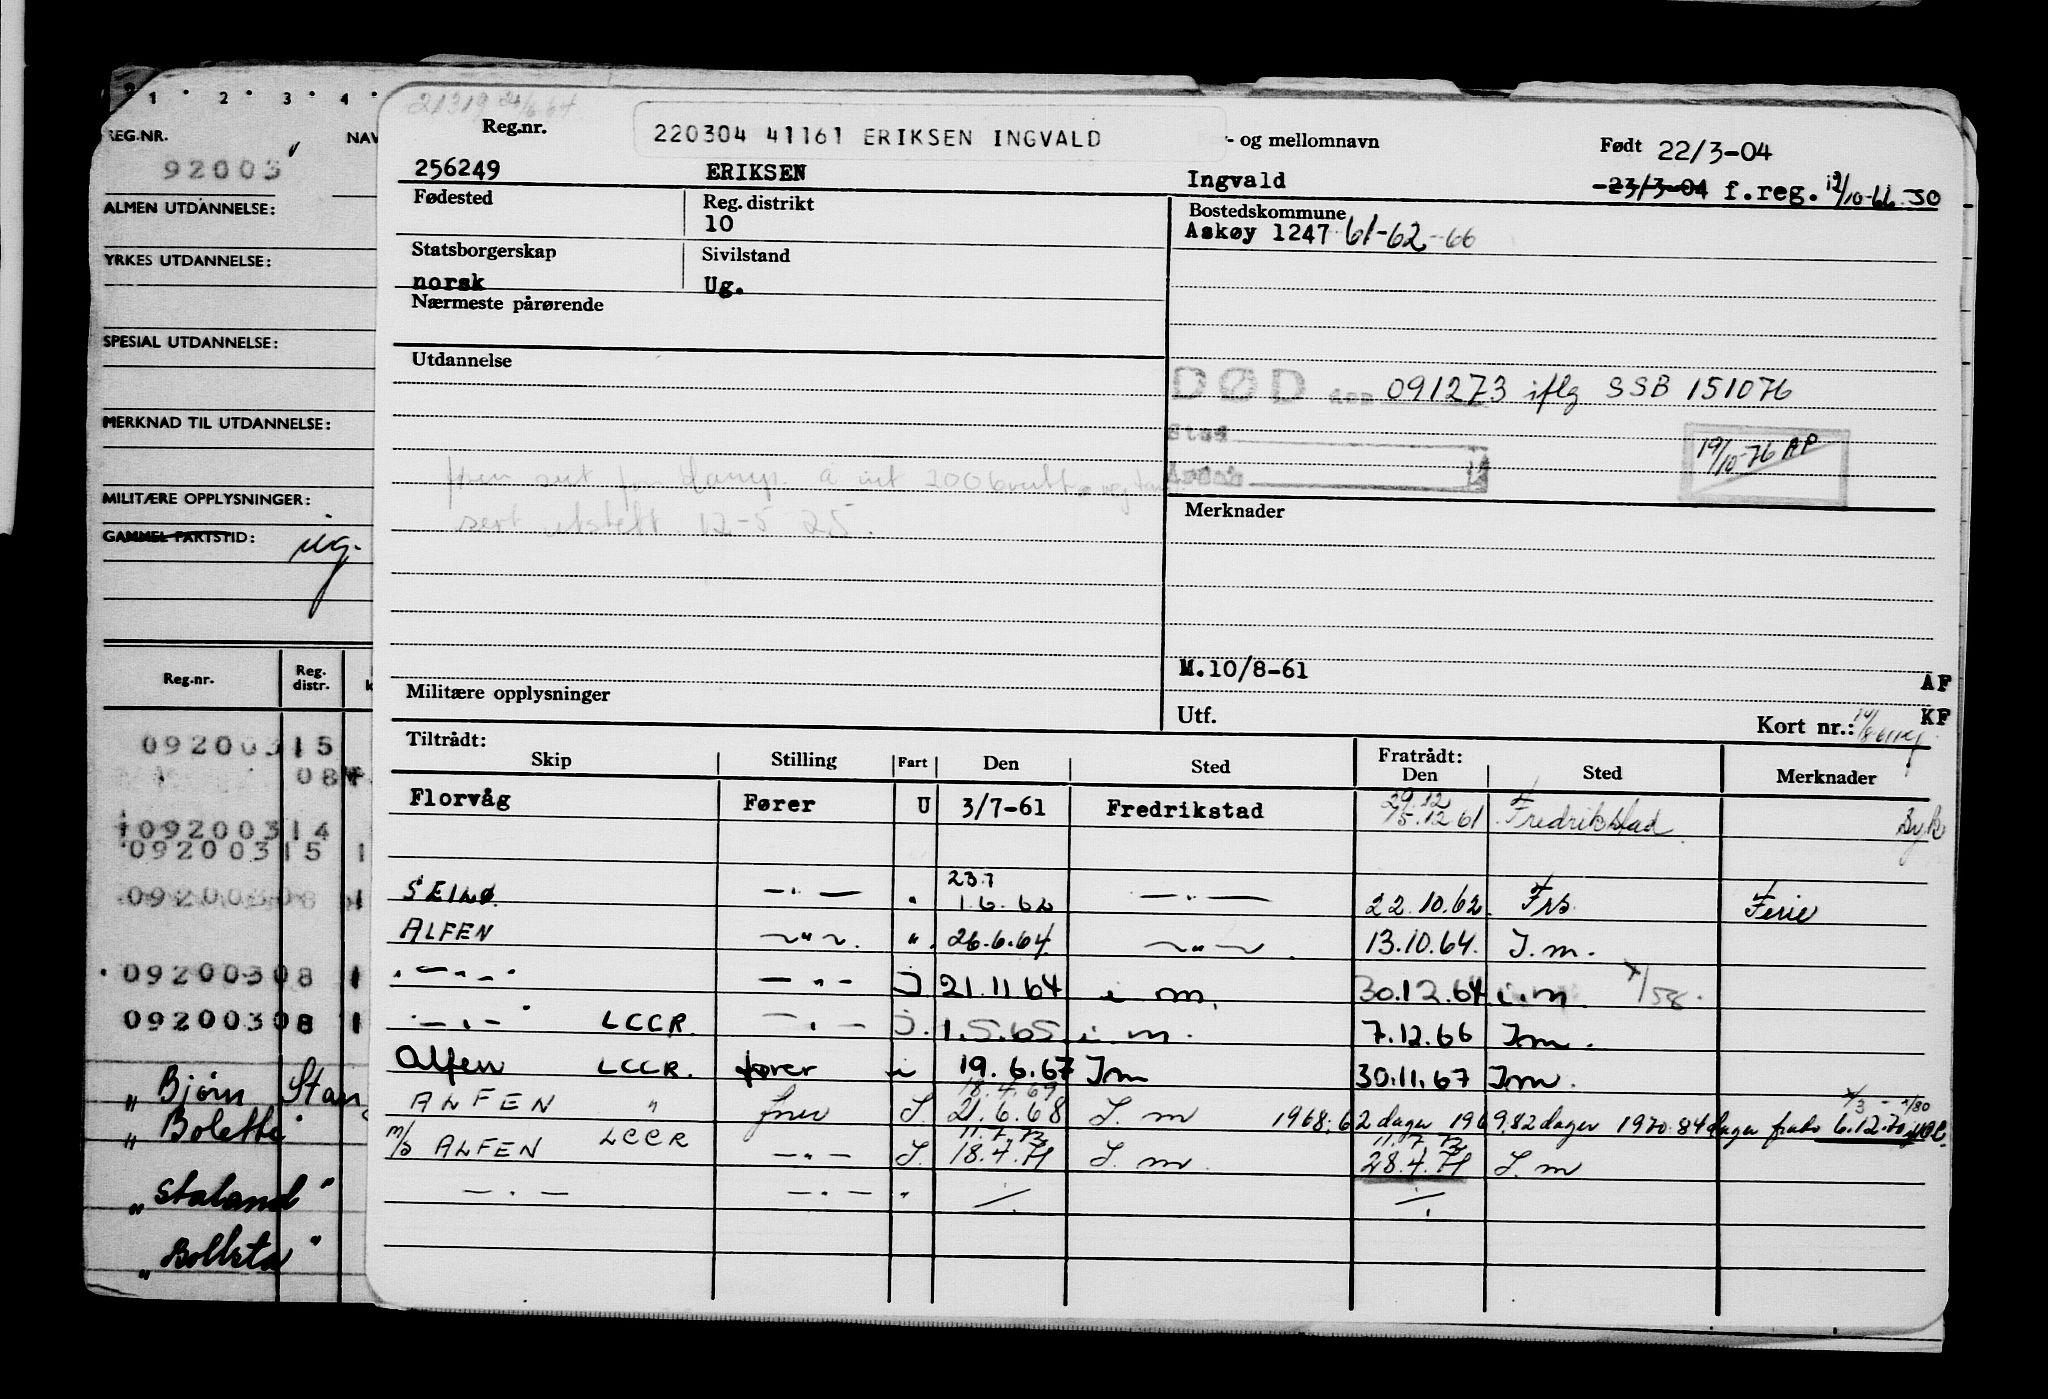 1 2 3 4
REG.NR. NAV
92003
ALMEN UTDANNELSE:
YRKES UTDANNELSE:
SPESIAL UTDANNELSE:
MERKNAD TIL UTDANNELSE:
MILITÆRE OPPLYSNINGER:
GAMMEL FARTSTID:
ug.
Reg.nr. Reg. distr.
09200315
08
09200314
09200315 1
09200308 1
09200308 1
09200308 1
„ Bjørn Stan
„ Bolette
„ Staland "
„ Bollsta "
21319
Reg.nr. 220304 41161 ERIKSEN INGVALD - og mellomnavn Født 22/3-04
256249 ERIKSEN Ingvald 23/3-04 f.reg. 12/10-66 JO
Fødested Reg. distrikt Bostedskommune
10 Askøy 1247 61-62-66
Statsborgerskap Sivilstand
norsk Ug.
Nærmeste pårørende
Utdannelse
DØD den 091273 iflg SSB 151076
Sted
19/10-76 AP
sert utstedt 12-5 25.
Merknader
M.10/8-61
AF
Militære opplysninger Utf. Kort nr.: KF
Tiltrådt: Fratrådt:
Skip Stilling Fart Den Sted Den Sted Merknader
Florvåg Fører U 3/7-61 Fredrikstad 29.12 15.12 61 Fredrikstad Syk
23.7
SEILØ — " — " 1.6.62 — " — 22.10.62. Frs Ferie
ALFEN — " — ". 26.6.64. — " — 13.10.64. I.m.
" — " — " — " — J 21.11 64 i m. 30.12.64 i.m.
— " — LCCR. — " — J. 1.5.65 i m. 7.12.66 I.m.
Alfen LCCR. fører i 19.6.67 Im 30.11.67 Im.
18.4.69
ALFEN " fører I. 21.6.68 I. m 1968:62 dager 1969.82 dager 1970.84 dager 6.12.70
11.7.72 11.7.72
m/s ALFEN LCCR — " — I. 18.4.71 I. m. 28.4.71 I.m
— " — — " — "